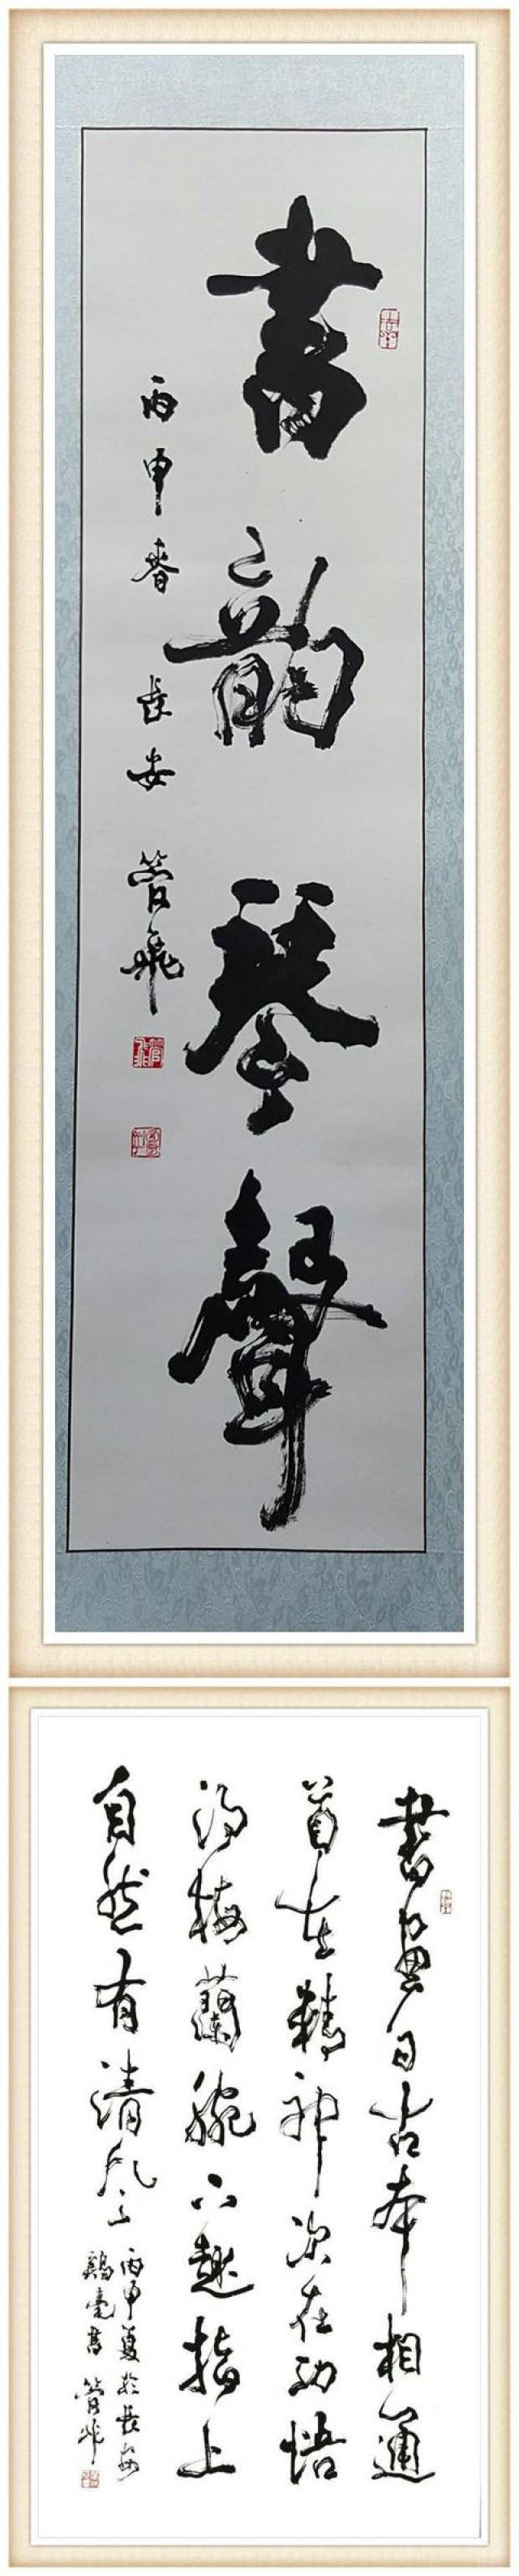 書韻琴聲
丙申春 長安 管飛
書畫自古本相通
首在精神次在功悟
得梅蘭腕下趣指上
自然有清風
丙申夏於長安
鷄毫書 管飛